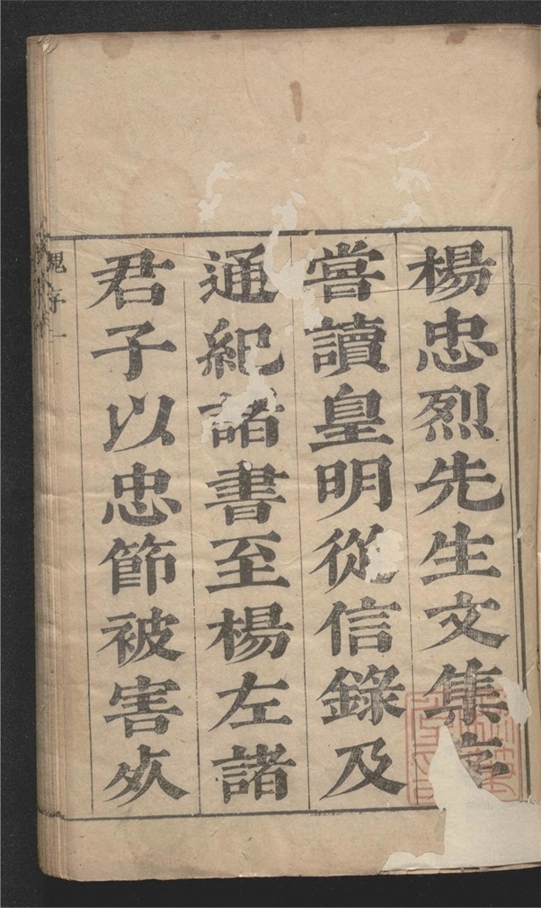 楊忠烈先生文集序
嘗讀皇明從信錄及
通紀諸書至楊左諸
君子以忠節被害必
序一